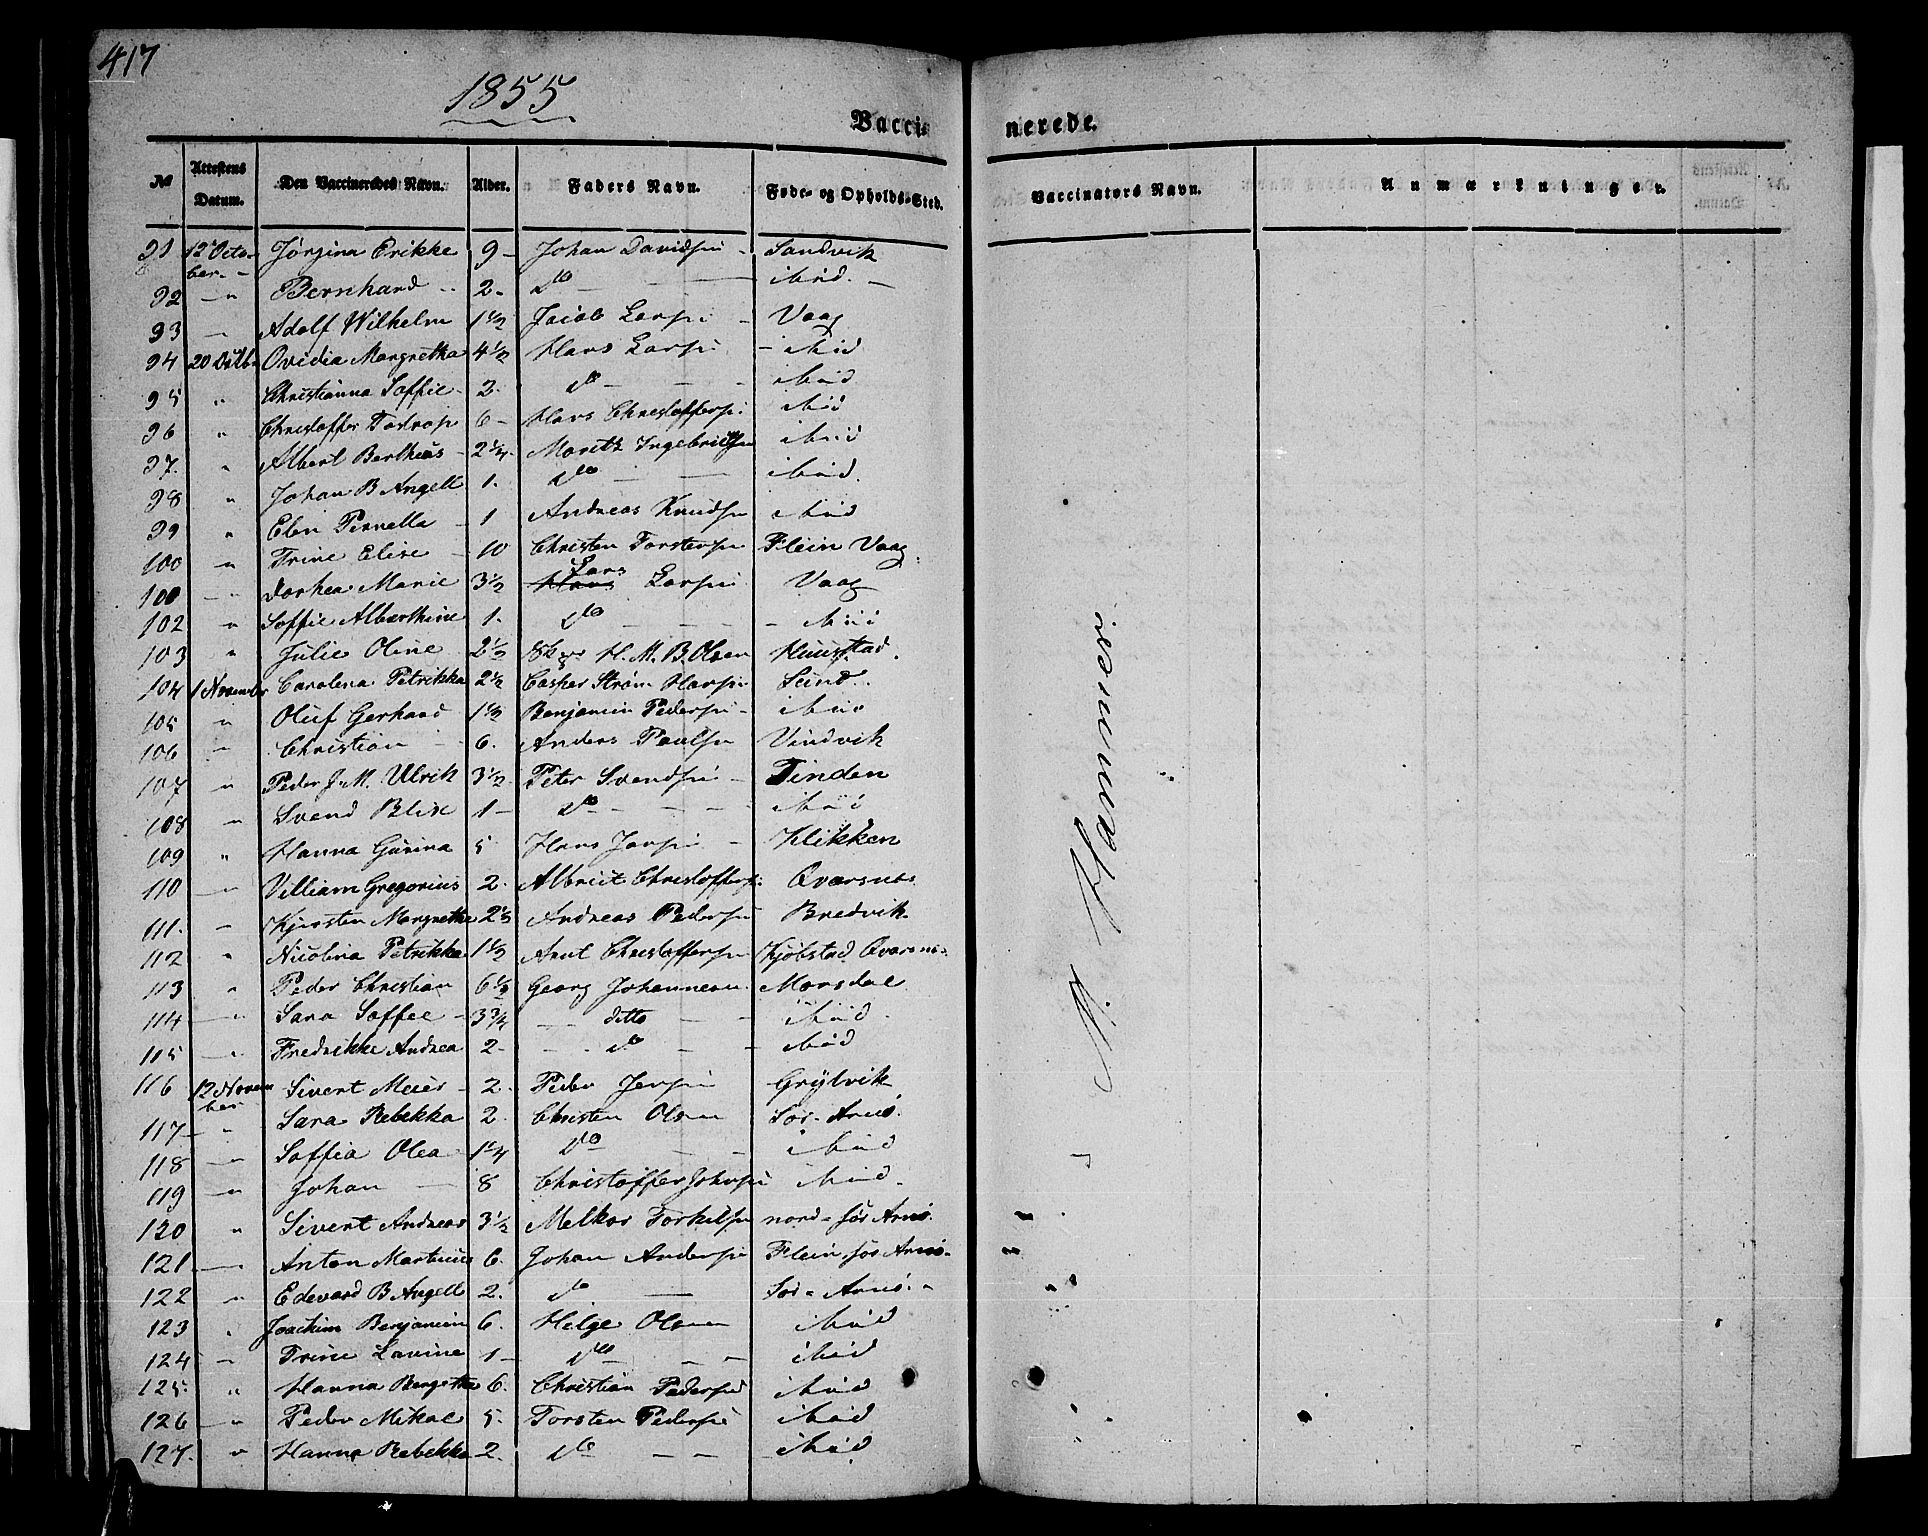 417
1855
Vacci- nerede.
№ Attestens Datum. Den Vaccineredes Navn. Alder. Faders Navn. Føde- og Opholds-Sted. Vaccinators Navn. Anmærkninger.
91 12 Octo- Jørgina Erikke 9 - Johan Davidsen - Sandvik
ber -
92 - " Bernhard - 2 - do - ibid -
93 - Adolf Wilhelm 1 1/2 Jacob Larsen - Vaag
94 20 Octbr Ovidia Margretha 4 1/2 Hans Larsen - ibid
95 " Christianna Soffie 2 - do - ibid
96 " Christoffer Tostrop 6 - Hans Christoffersen ibid
97. " Albert Bertheus 2 1/4 - Moritz Ingebrictsen ibid
98 " Johan B Angell 1. do - ibid.
99 " Elen Pernella - 1 Andreas Knudsen ibid
100 " Trine Elise - 10 Christen Torstensen Flein Vaag
Lars
100 - " Dorthea Marie 3 1/2 Hans Larsen Vaag
102 " Soffie Alberthine 1. do - ibid
103 " Julie Oline 2 1/2 H. M. B. Olsen
104 1 November Carolina Petrikka 2 1/2 Casper Strøm Hansen Sund
105 " Oluf Gerhard 1 1/2 Benjamin Pedersen - ibid
106 " Christian - 6. Anders Paulsen Vindvik
107 " Peder J. M. Ulrik 3 1/2 Peter Svendsen - Tinden
108 " Svend Blix 1 - do - ibid
109 " Hanna Gurina 5 Hans Jansen - Klikken
110 - " Villiam Gregorius 2. Albrict Christoffersen Qvarsnes
111. - Kjersten Margrethe 2 1/2 Andreas Pedersen Bredvik
112 " Nicolina Petrikka 1 1/2 Arnt Christoffersen Kjøbstad Qvarsnes
113 " Peder Christian 6 1/2 Georg Johannesen Morsdal
114 - " Sara Soffie - 3 3/4 - ditto - ibid -
115 - " Fredrikke Andrea 2 - - do - ibid
116 12 Novem Sivert Meier - 2. Peder Jensen Grytvik
ber
117 - " Sara Rebekka 2. Christen Olsen Sør-Arnø.
118 - " Soffia Olea 1 1/4 do - ibid
119 - " Johan - 8 Christoffer Johnsen ibid.
120 " Sivert Andreas 3 1/2 Melkor Torkelsen nord-Sør Arnø.
121 - Anton Martinus 6. Johan Andersen Flein, Sør Arnø.
122 " Edevard B Angell 2. do - Sør-Arnø. "
123 " Joachim Benjamin 6. Helge Olsen ibid
124 - " Trine Lavine 1 - do - ibid
125. " Hanna Bergetha 6. Christian Pedersen ibid
126 - " Peder Mikal 5. Torsten Pedersen ibid
127. " Hanna Rebekka 2. do - ibid